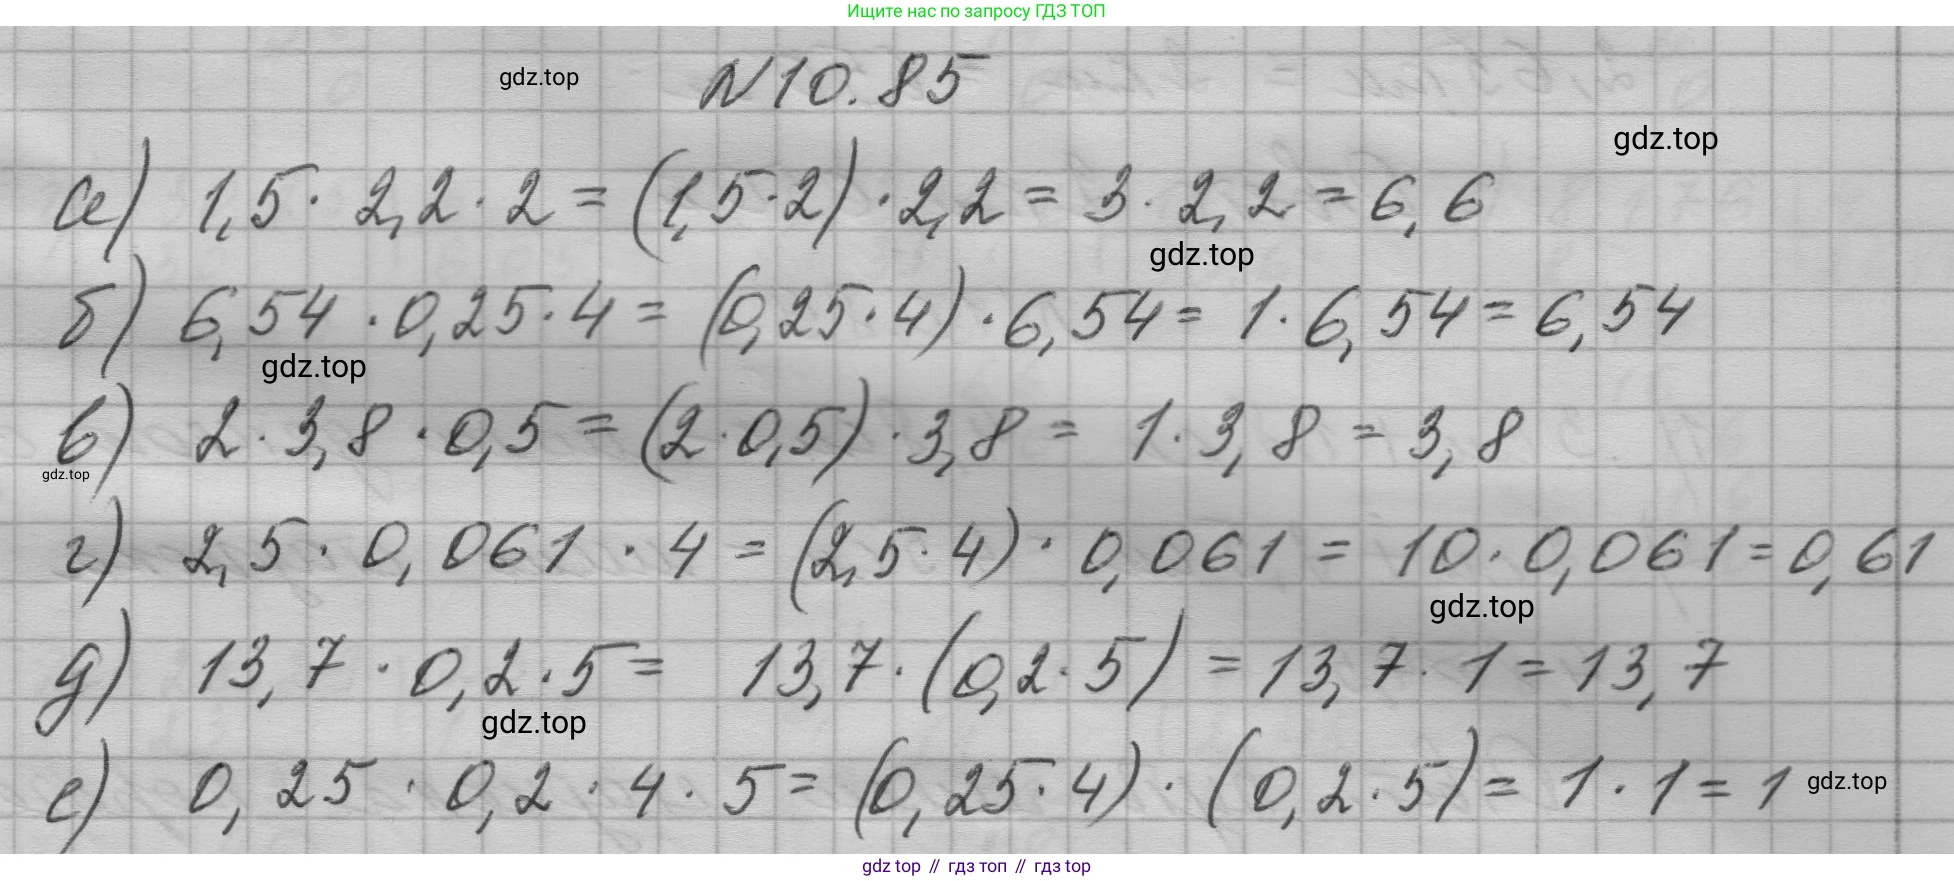 Ищите нас по запросу ГДЗ ТОП
gdz.top
N10.85
gdz.top
а) 1,5 · 2,2 · 2 = (1,5 · 2) · 2,2 = 3 · 2,2 = 6,6
gdz.top
б) 6,54 · 0,25 · 4 = (0,25 · 4) · 6,54 = 1 · 6,54 = 6,54
gdz.top
в) 2 · 3,8 · 0,5 = (2 · 0,5) · 3,8 = 1 · 3,8 = 3,8
gdz.top
г) 2,5 · 0,061 · 4 = (2,5 · 4) · 0,061 = 10 · 0,061 = 0,61
gdz.top
д) 13,7 · 0,2 · 5 = 13,7 · (0,2 · 5) = 13,7 · 1 = 13,7
gdz.top
е) 0,25 · 0,2 · 4 · 5 = (0,25 · 4) · (0,2 · 5) = 1 · 1 = 1
gdz.top
gdz top // гдз топ // гдз top